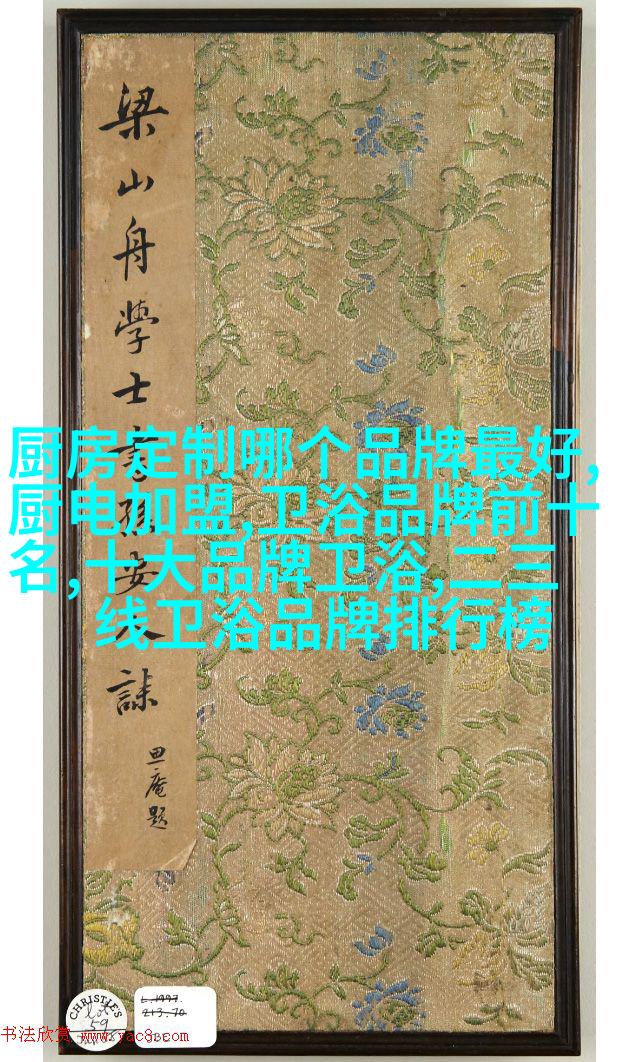 梁山舟學士書孫安人誄
思庵題
厨房定制哪个品牌最好,
厨电加盟,卫浴品牌前十
名,十大品牌卫浴,二三
线卫浴品牌排行榜
CHRISTIE'S
Lot
59
L.1997.
213.70
书法欣赏 www.yac8.com